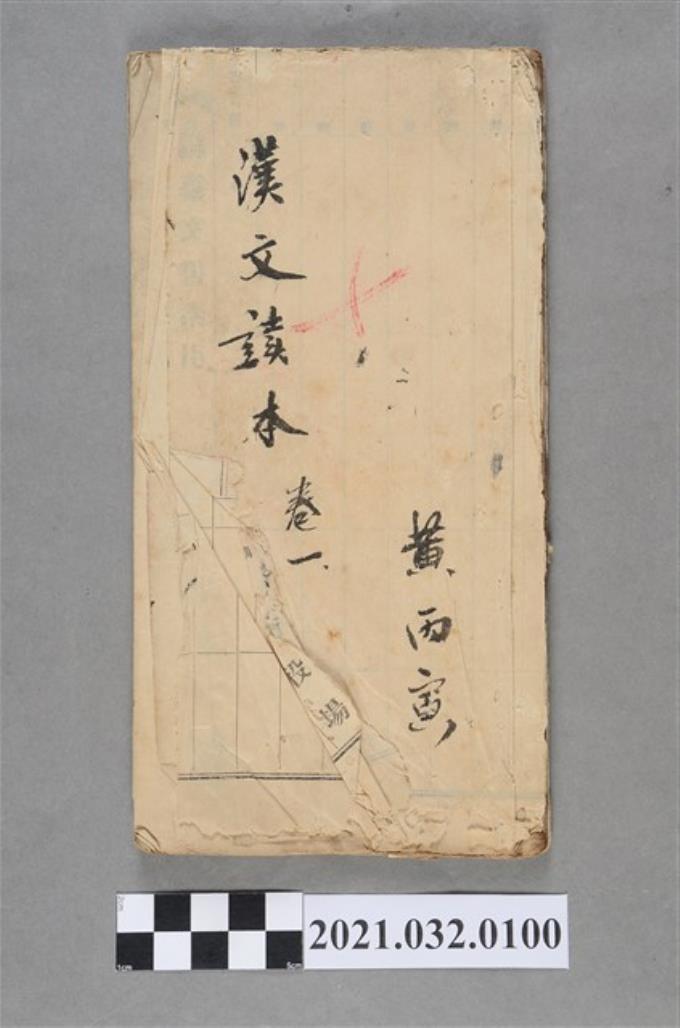 漢文讀本 卷一
黃丙寅
役場
2021.032.0100
2cm
1cm
5cm